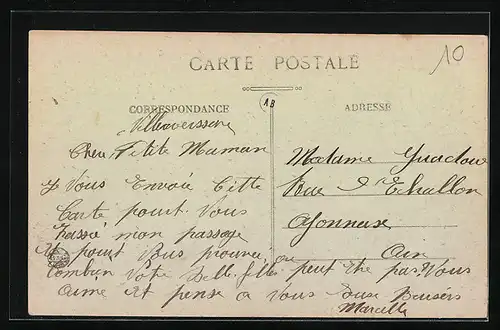 10
CARTE POSTALE
AB
CORRESPONDANCE
ADRESSE
Cher Petite Maman
Je Vous Envoie Cette
Carte pour Vous
mon passage
Et pour Vous
Combien Votre Belle fille ou peut être pas Vous
aime et pense a Vous Doux Baisers
Marcelle
Madame
Rue d'Echallon
Oyonnax
Ain